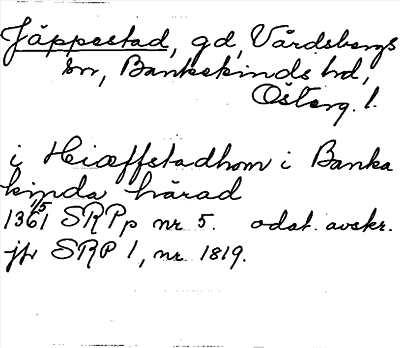 Jäppestad, gd, Vårdsbergs
sn, Bankekinds hd,
Österg. l.
i Hiæffstadhom i Banka
kinda härad
1361 15/5 SRPp nr 5. odat. avskr.
jfr SRP 1, nr 1819.